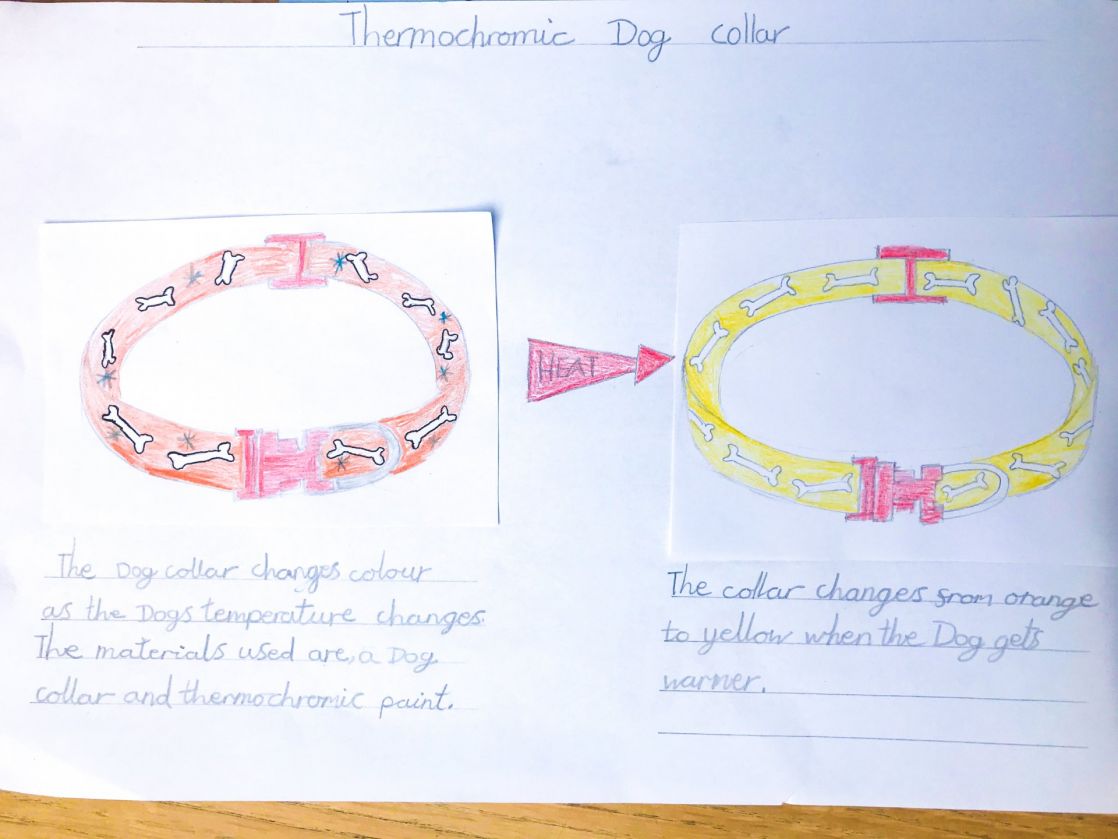 Thermochromic Dog collar
HEAT
The Dog collar changes colour
as the Dogs temperature changes.
The materials used are, a Dog
collar and thermochromic paint.
The collar changes from orange
to yellow when the Dog gets
warmer.